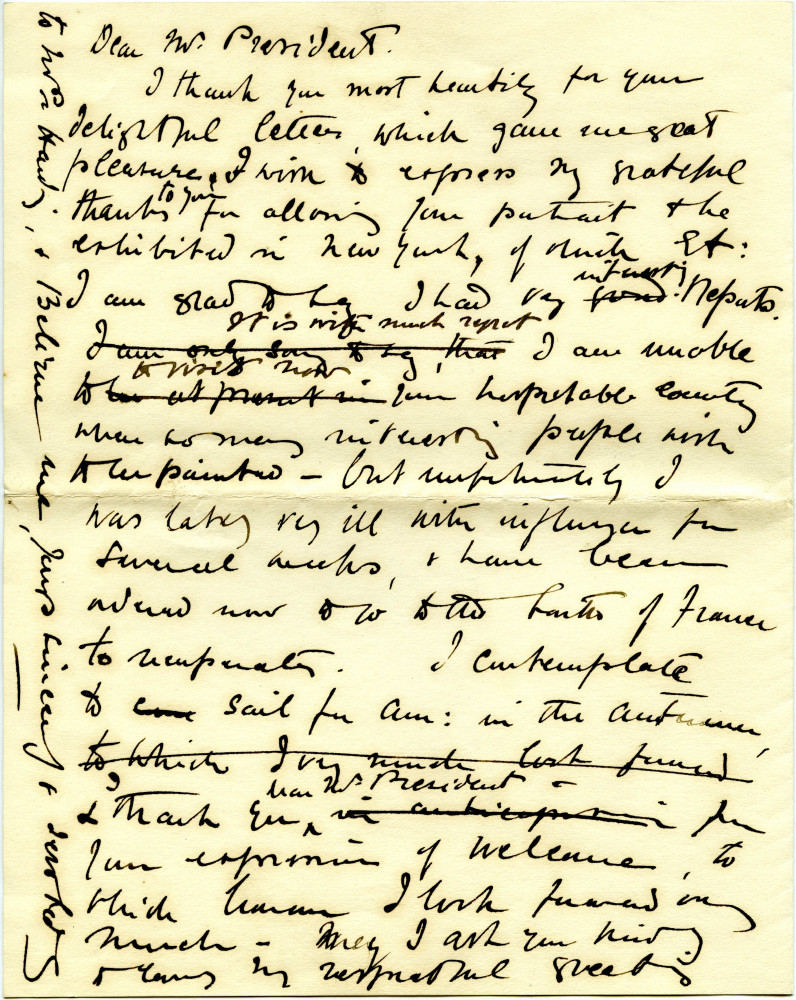 Dear Mr. President.
I thank you most heartily for your
delightful letter, which gave me great
pleasure, & I wish to express my grateful
thanks to you for allowing your portrait to be
exhibited in New York, of which
I am glad to say I had very good interesting Reports.
I am only sorry to say, that It is with much regret I am unable
to be at present in to visit now your hospitable country
when so many interesting people wish
to be painted - but unfortunately I
was lately very ill with influenza for
several weeks, & have been
ordered now to go to the baths of France
to recuperate. I contemplate
to come sail for Am: in the autumn,
to which I very much look forward
& I thank you, dear Mr. President - in anticipation for
your expression of welcome, to
which honour I look forward very
much - May I ask you kindly
to convey my respectful greetings
to Mrs Harding, & Believe me, yours sincerely & devotedly